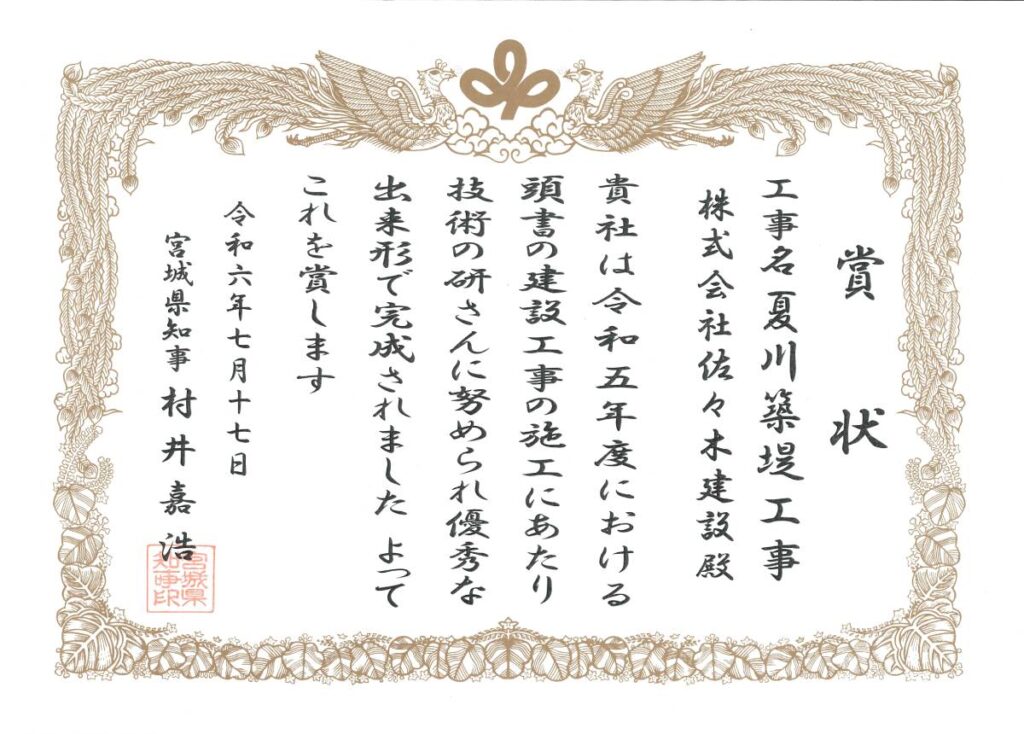 賞状
工事名 夏川築堤工事
株式会社佐々木建設殿
貴社は令和五年度における
頭書の建設工事の施工にあたり
技術の研さんに努められ優秀な
出来形で完成されました よって
これを賞します
令和六年七月十七日
宮城県知事 村井嘉浩
宮城県
知事印